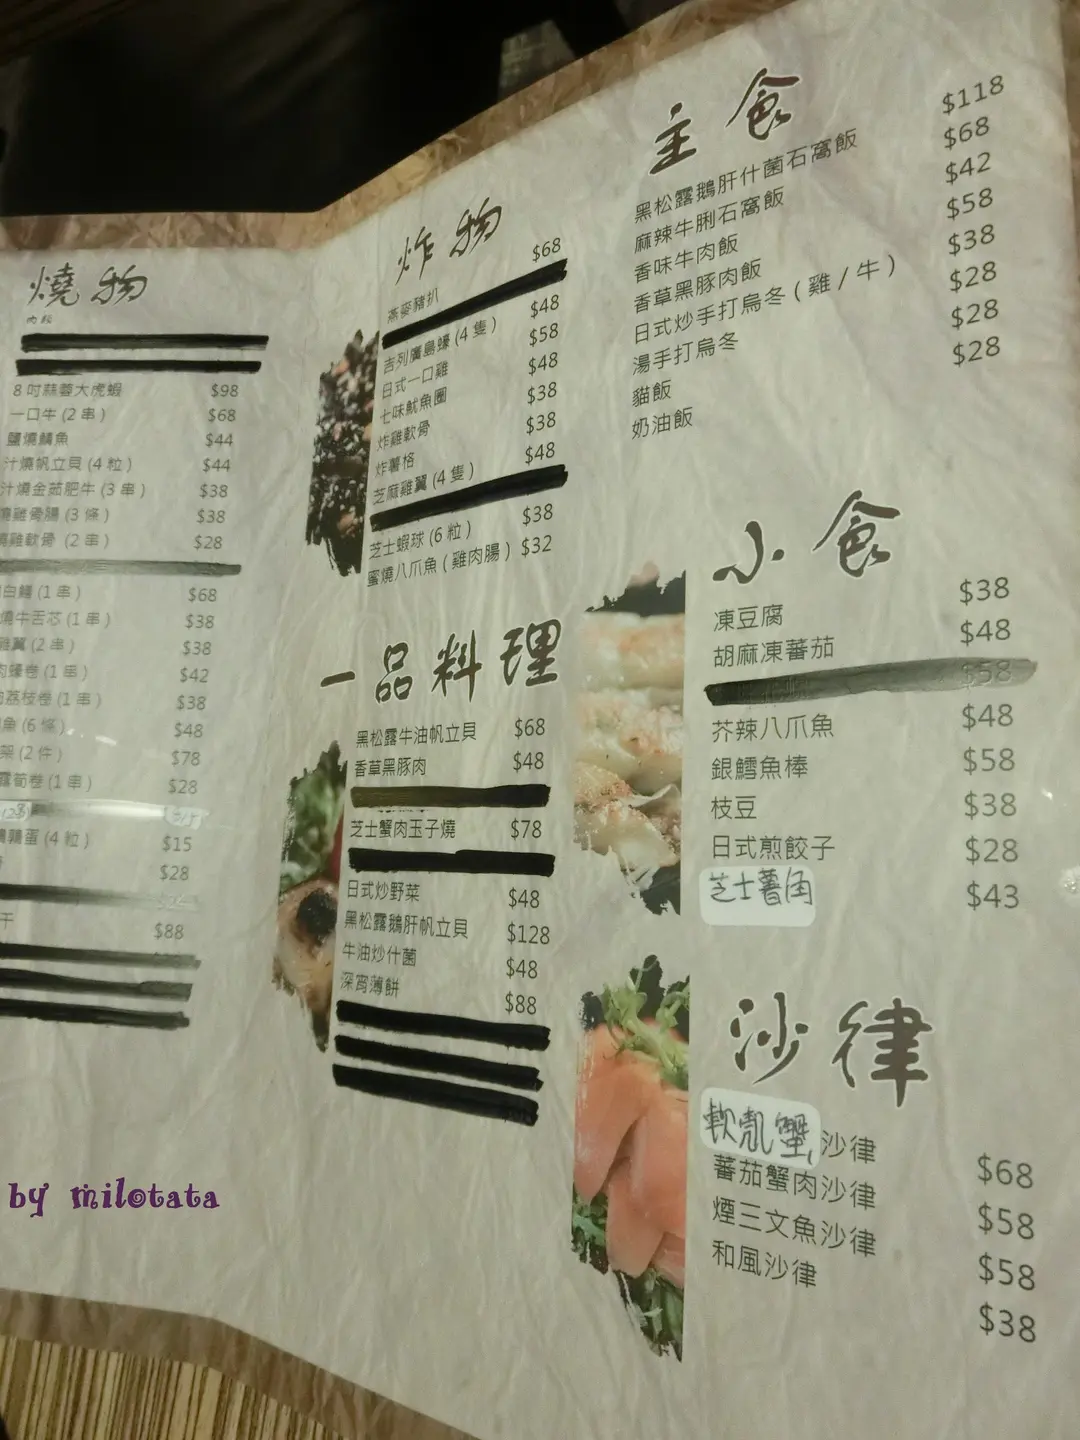 燒物
8吋蒜蓉大虎蝦 $98
一口牛(2串) $68
鹽燒鯖魚 $44
汁燒帆立貝(4粒) $44
汁燒金茹肥牛(3串) $38
燒雞骨腸(3條) $38
燒雞軟骨(2串) $28
白鱔(1串) $68
燒牛舌芯(1串) $38
雞翼(2串) $38
肉蠔卷(1串) $42
荔枝卷(1串) $38
魚(6條) $48
架(2件) $78
露筍卷(1串) $28
鵪蛋(4粒) $15
$28
干 $88
炸物
燕麥豬扒 $68
吉列廣島蠔(4隻) $48
日式一口雞 $58
七味魷魚圈 $48
炸雞軟骨 $38
炸薯格 $38
芝麻雞翼(4隻) $48
芝士蝦球(6粒) $38
蜜燒八爪魚(雞肉腸) $32
一品料理
黑松露牛油帆立貝 $68
香草黑豚肉 $48
芝士蟹肉玉子燒 $78
日式炒野菜 $48
黑松露鵝肝帆立貝 $128
牛油炒什菌 $48
深宵薄餅 $88
主食
黑松露鵝肝什菌石窩飯 $118
麻辣牛脷石窩飯 $68
香味牛肉飯 $42
香草黑豚肉飯 $58
日式炒手打烏冬(雞/牛) $38
湯手打烏冬 $28
貓飯 $28
奶油飯 $28
小食
凍豆腐 $38
胡麻凍蕃茄 $48
$58
芥辣八爪魚 $48
銀鱈魚棒 $58
枝豆 $38
日式煎餃子 $28
芝士薯角 $43
沙律
軟殼蟹沙律 $68
蕃茄蟹肉沙律 $58
煙三文魚沙律 $58
和風沙律 $38
by milotata